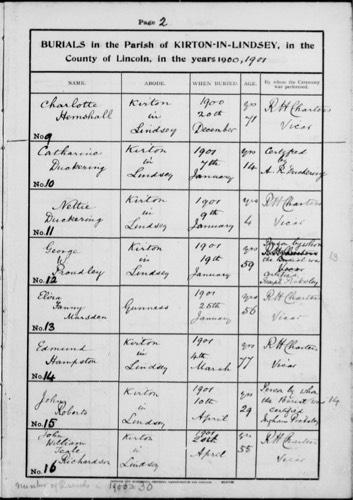 Page 2
BURIALS in the Parish of KIRTON-IN-LINDSEY, in the
County of Lincoln, in the years 1900, 1901
NAME. ABODE. WHEN BURIED. AGE. By whom the Ceremony
was performed.
Charlotte Kirton 1900 yrs R H Charters
Hemshall in 20th 71
Lindsey December Vicar
No. 9
Catharine Kirton 1901 yrs Certified
Duckering in 7th 14 by
Lindsey January A. R. Duckering
No. 10
Nettie Kirton 1901 yrs R H Charters
Duckering in 9th 4
Lindsey January Vicar
No. 11
George Kirton 1901 yrs
W in 19th 59 the Burial was
Proudley Lindsey January certified
No. 12
Elvia 1901 yrs R H Charters
Fanny Gunness 25th 56
Marsden January Vicar
No. 13
Edmund Kirton 1901 yrs R H Charters
Hampston in 4th 77
Lindsey March Vicar
No. 14
John Kirton 1901 yrs Person by whom
Roberts in 10th 29 the Burial was
Lindsey April certified
No. 15
John Kirton 1901 yrs R H Charters
William in 20th 55
Teale Lindsey April Vicar
Richardson
No. 16
number of Burials in 1900 = 30